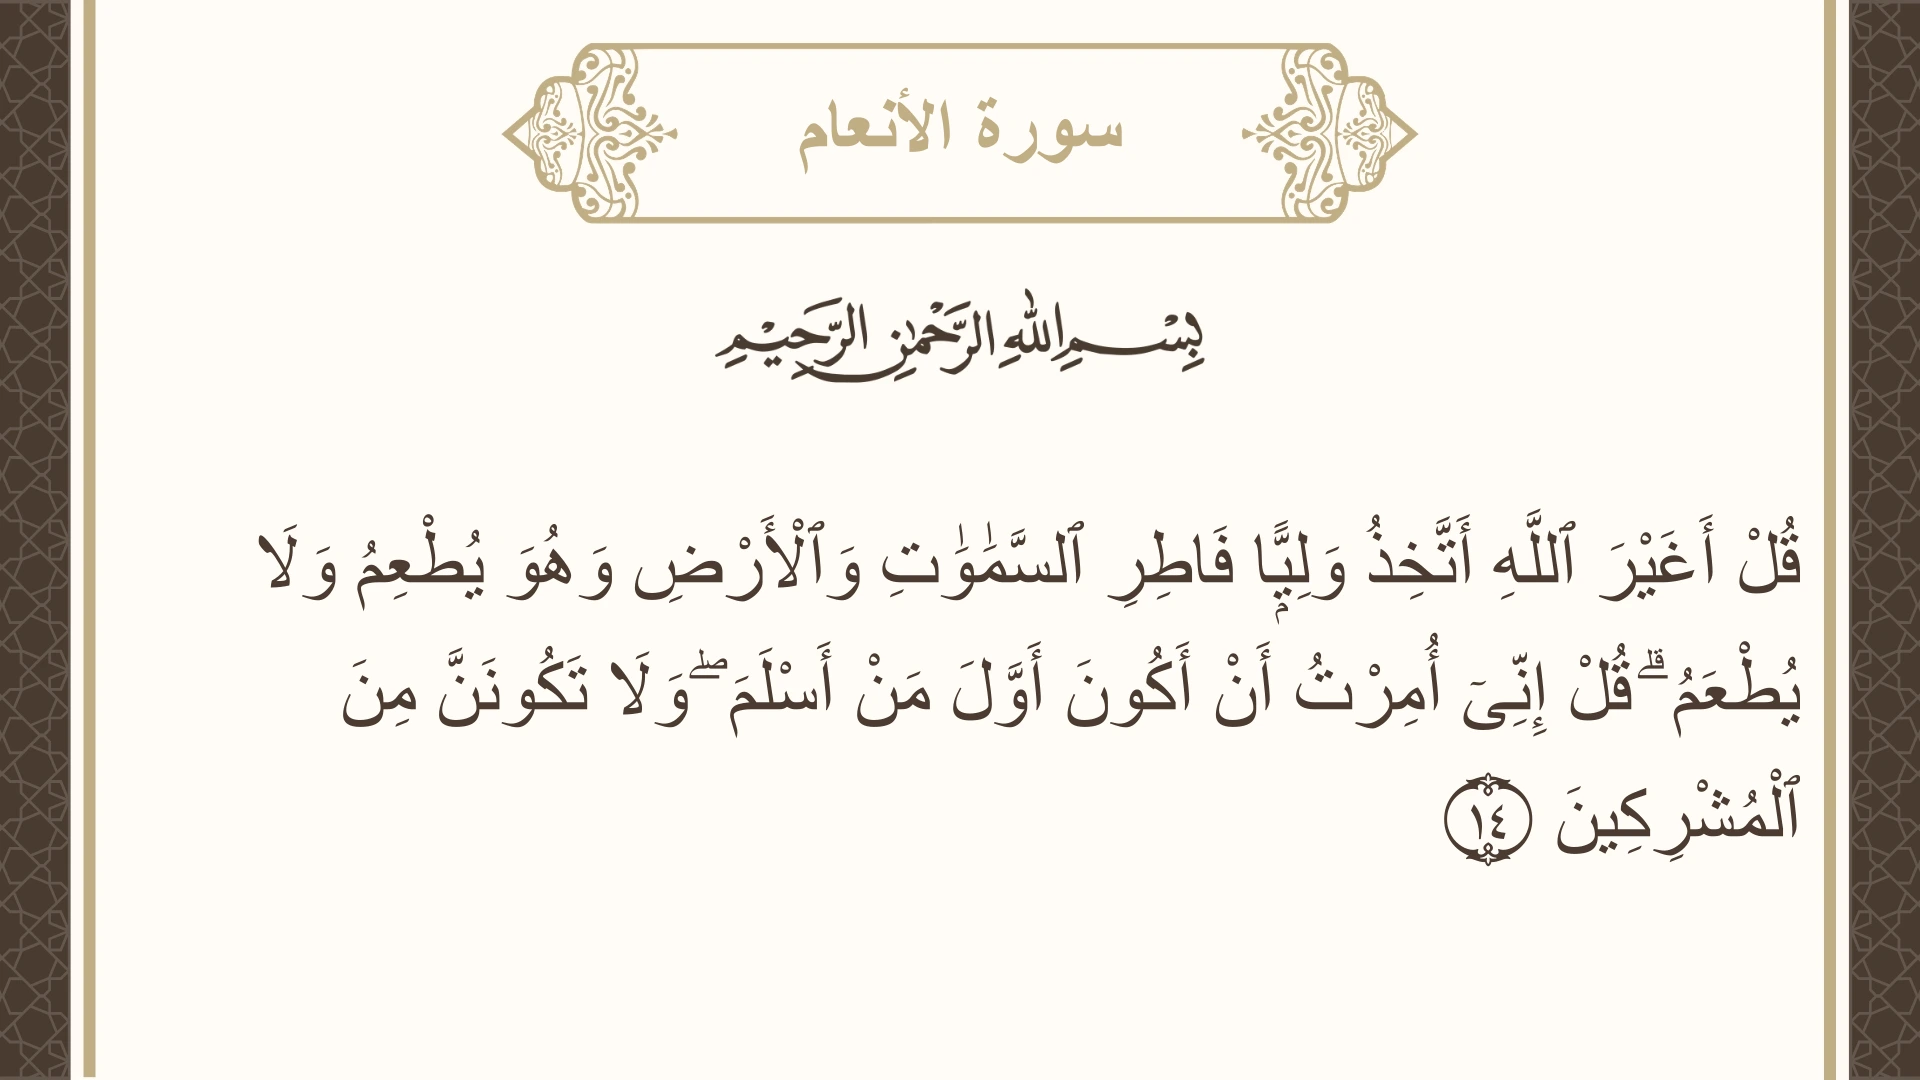 سورة الأنعام
بِسْمِ اللهِ الرَّحْمٰنِ الرَّحِيْمِ
قُلْ أَغَيْرَ ٱللَّهِ أَتَّخِذُ وَلِيًّۭا فَاطِرِ ٱلسَّمَٰوَٰتِ وَٱلْأَرْضِ وَهُوَ يُطْعِمُ وَلَا
يُطْعَمُ ۗ قُلْ إِنِّىٓ أُمِرْتُ أَنْ أَكُونَ أَوَّلَ مَنْ أَسْلَمَ ۖ وَلَا تَكُونَنَّ مِنَ
ٱلْمُشْرِكِينَ ١٤